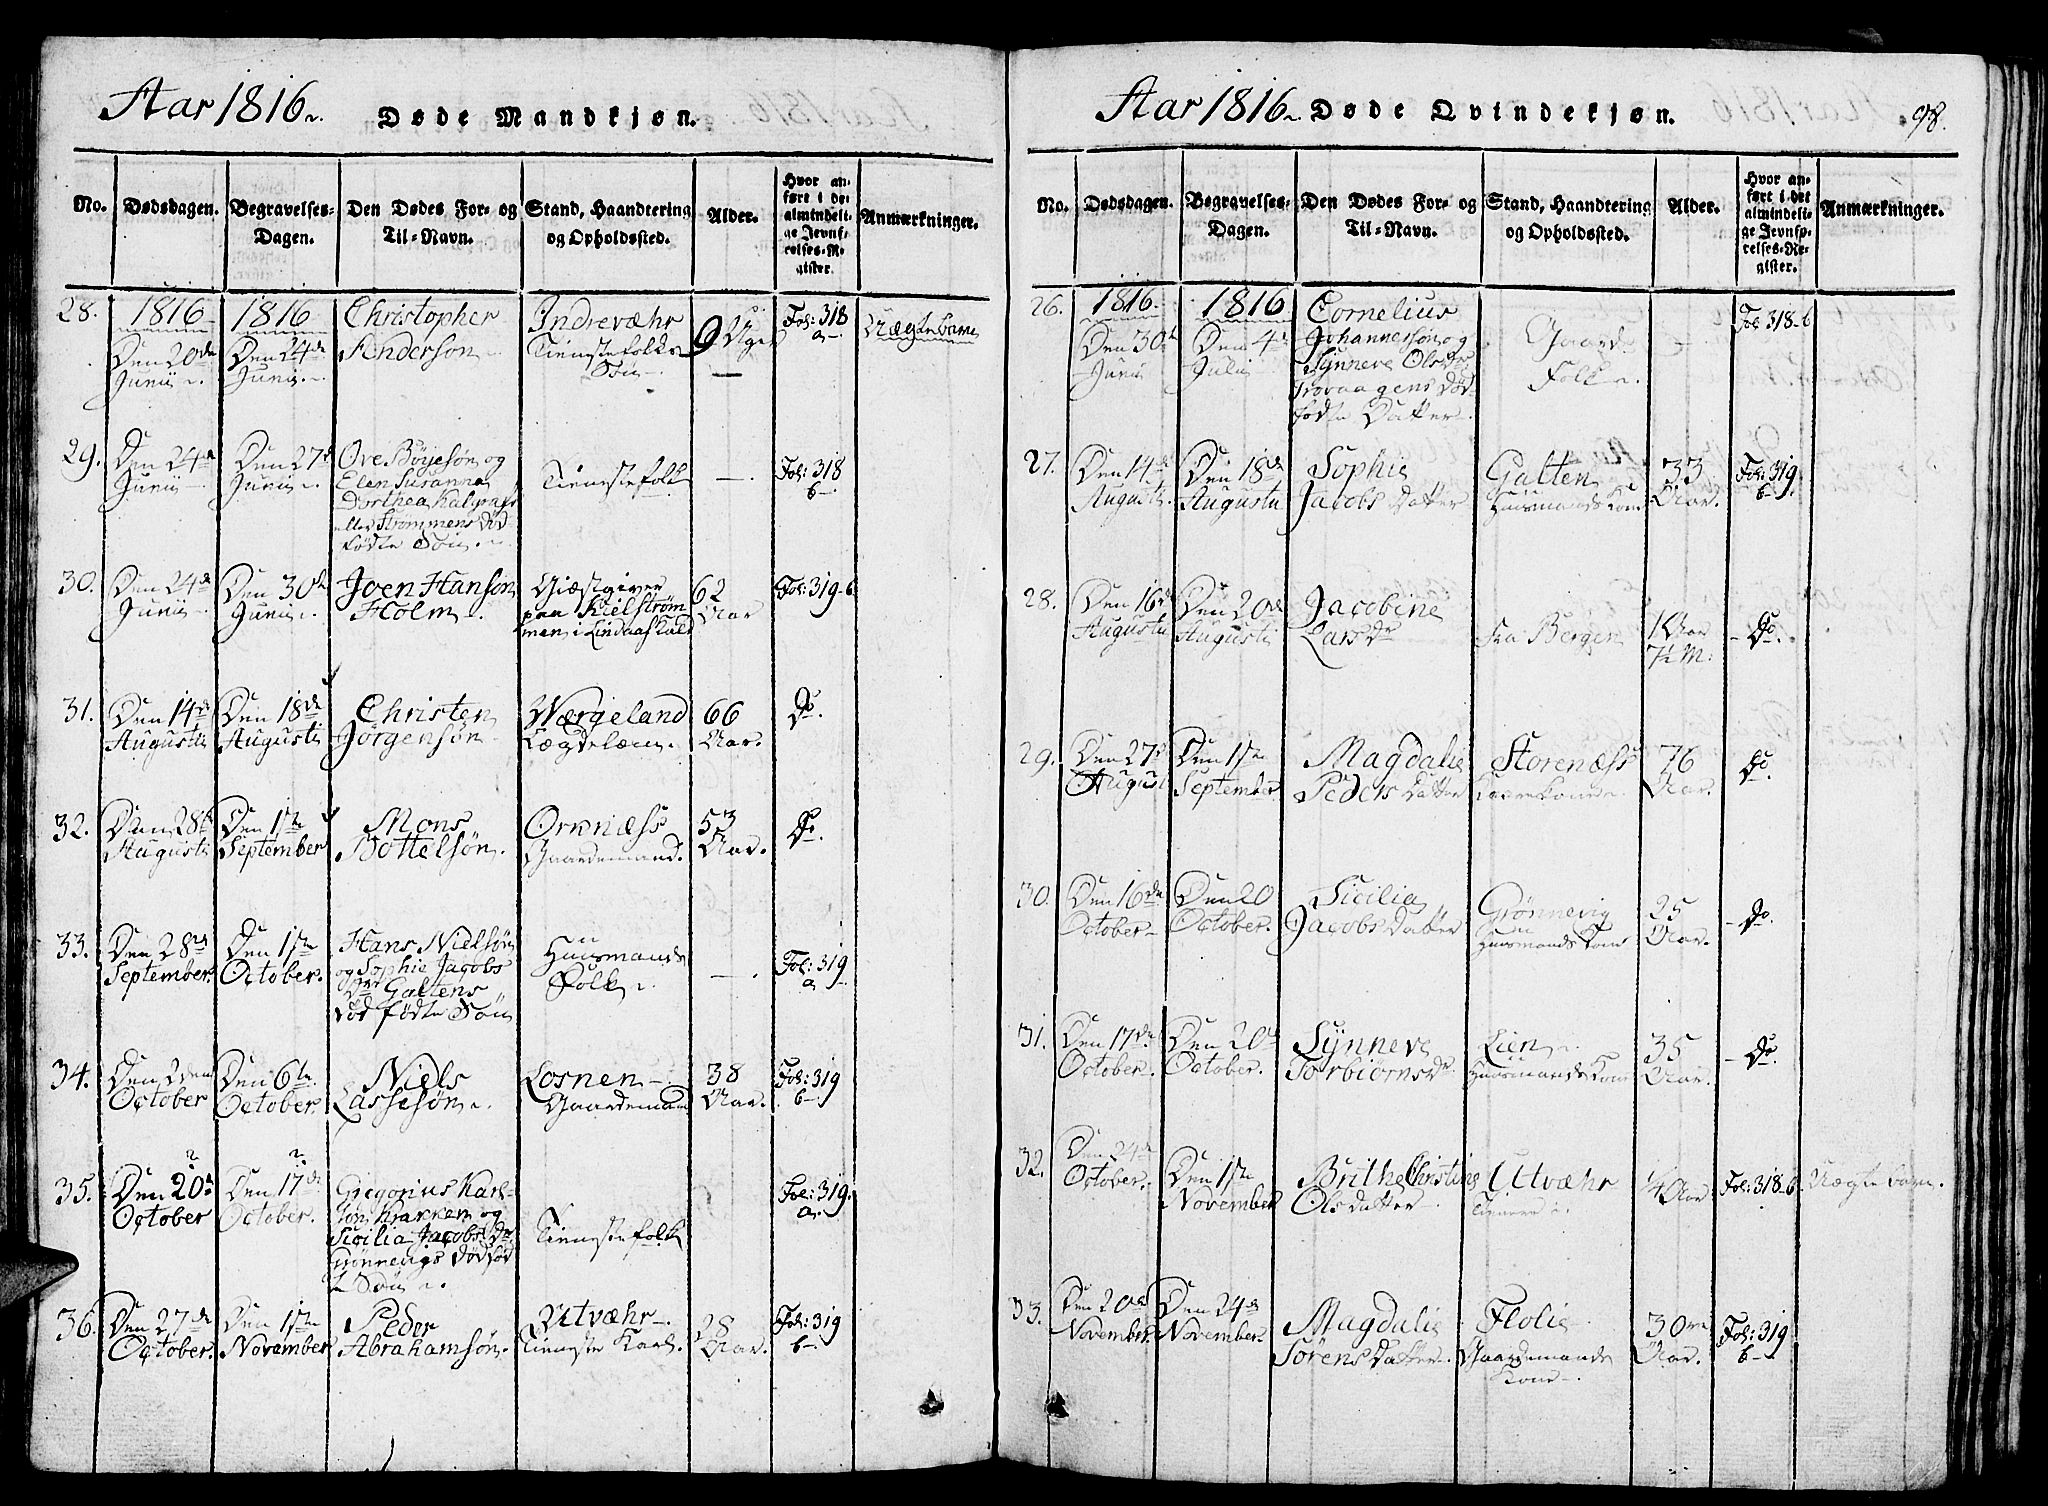 Aar 1816.
Døde Mandkjøn.
No.
Dødsdagen.
Begravelses-
Dagen.
Den Dødes For- og
Til-Navn.
Stand, Haandtering
og Opholdssted.
Alder.
Hvor an-
ført i det
almindeli-
ge Jevnfø-
relses-Re-
gister.
Anmærkninger.
28.
1816
Den 20de
Junii
1816
Den 24de
Junii
Christopher
Anderson
Indrevæhr
Tienstefolks
Søn
9 Uger
Fol: 318
a
Uægte barn
29.
Den 24de
Junii
Den 27de
Junii
Ove Böyesøn og
Elen Susanna
Dorthea Kalgraf
eller Strømmens død
fødte Søn
Tienstefolk
—
Fol: 318
b
30.
Den 24de
Junii
Den 30te
Junii
Joen Hansøn
Holm
Giæstgiver
paa Kielstrøm
men i Lindaas Kald
62
Aar
Fol: 319-b
31.
Den 14de
Augusti
Den 18de
Augusti
Christen
Jörgensön
Wærgeland
Lægdelem.
66
Aar.
Do.
32.
Den 28de
Augusti
Den 1ste
September
Mons
Bottelsön.
Ornæss
Gaardemand.
53
Aar.
Do.
33.
Den 28de
September.
Den 1ste
October.
Hans Nielsön
og Sophie Jacobs
Dtr Galtens
død fødte Søn
Huusmands
Folk
—
Fol: 319
a
34.
Den 2den
October
Den 6te
October.
Niels
Lassesön
Losnen
Gaardemand
38
Aar.
Fol: 319
b
35.
Den 20de
October
Den 17de
October.
Gregorius Karl-
søn Krakken og
Sicilia Jacobs Dr
Grønnevigs død fød
t Søn
Tienstefolk
Fol: 319.
a.
36.
Den 27de
October.
Den 1ste
November
Peder
Abrahamsön.
Utvæhr
Tieneste Karl.
28
Aar.
Fol: 319
b
Aar 1816
Døde Qvindekjøn.
98.
No.
Dødsdagen.
Begravelses-
Dagen.
Den Dødes For- og
Til-Navn.
Stand, Haandtering
og Opholdssted.
Alder.
Hvor an-
ført i det
almindeli-
ge Jevnfø-
relses-Re-
gister.
Anmærkninger.
26.
1816.
Den 30te
Junii
1816
Den 4de
Julii
Cornelius
Johannesøn og
Synneve Olsdr
Trovaagens død-
fødte Datter
Gaarde
Folk
Fol: 318-b
27.
Den 14de
Augusti.
Den 18de
Augusti
Sophie
Jacobs Datter
Galten
Huusmands Kone
33
Aar.
Fol: 319.
b
28.
Den 16de
Augusti
Den 20de
Augusti
Jacobine
Larsdr
fra Bergen
1 Aar
7½ M:
Do.
29.
Den 27de
August
Den 1ste
September.
Magdalie
Peders Datter
Storenæss
76
Aar.
Do.
30.
Den 16de
October
Den 20
October.
Sicilia
Jacobs Datter
Grönnevig
Huusmands Kone
25
Aar.
Do.
31.
Den 17de
October.
Den 20de
October.
Synneve
Torbiörnsdr.
Lien
Huusmands Kone
35
Aar.
Do.
32.
Den 24de
October.
Den 1ste
November
Brithe Christine
Olsdatter
Utvæhr
¼ Aar
Fol: 318-b
Uægte barn.
33.
Den 20de
November.
Den 24de
November.
Magdalie
Sörens Datter.
Flolie
Gaardemands
Kone
30
Aar.
Fol: 319
b